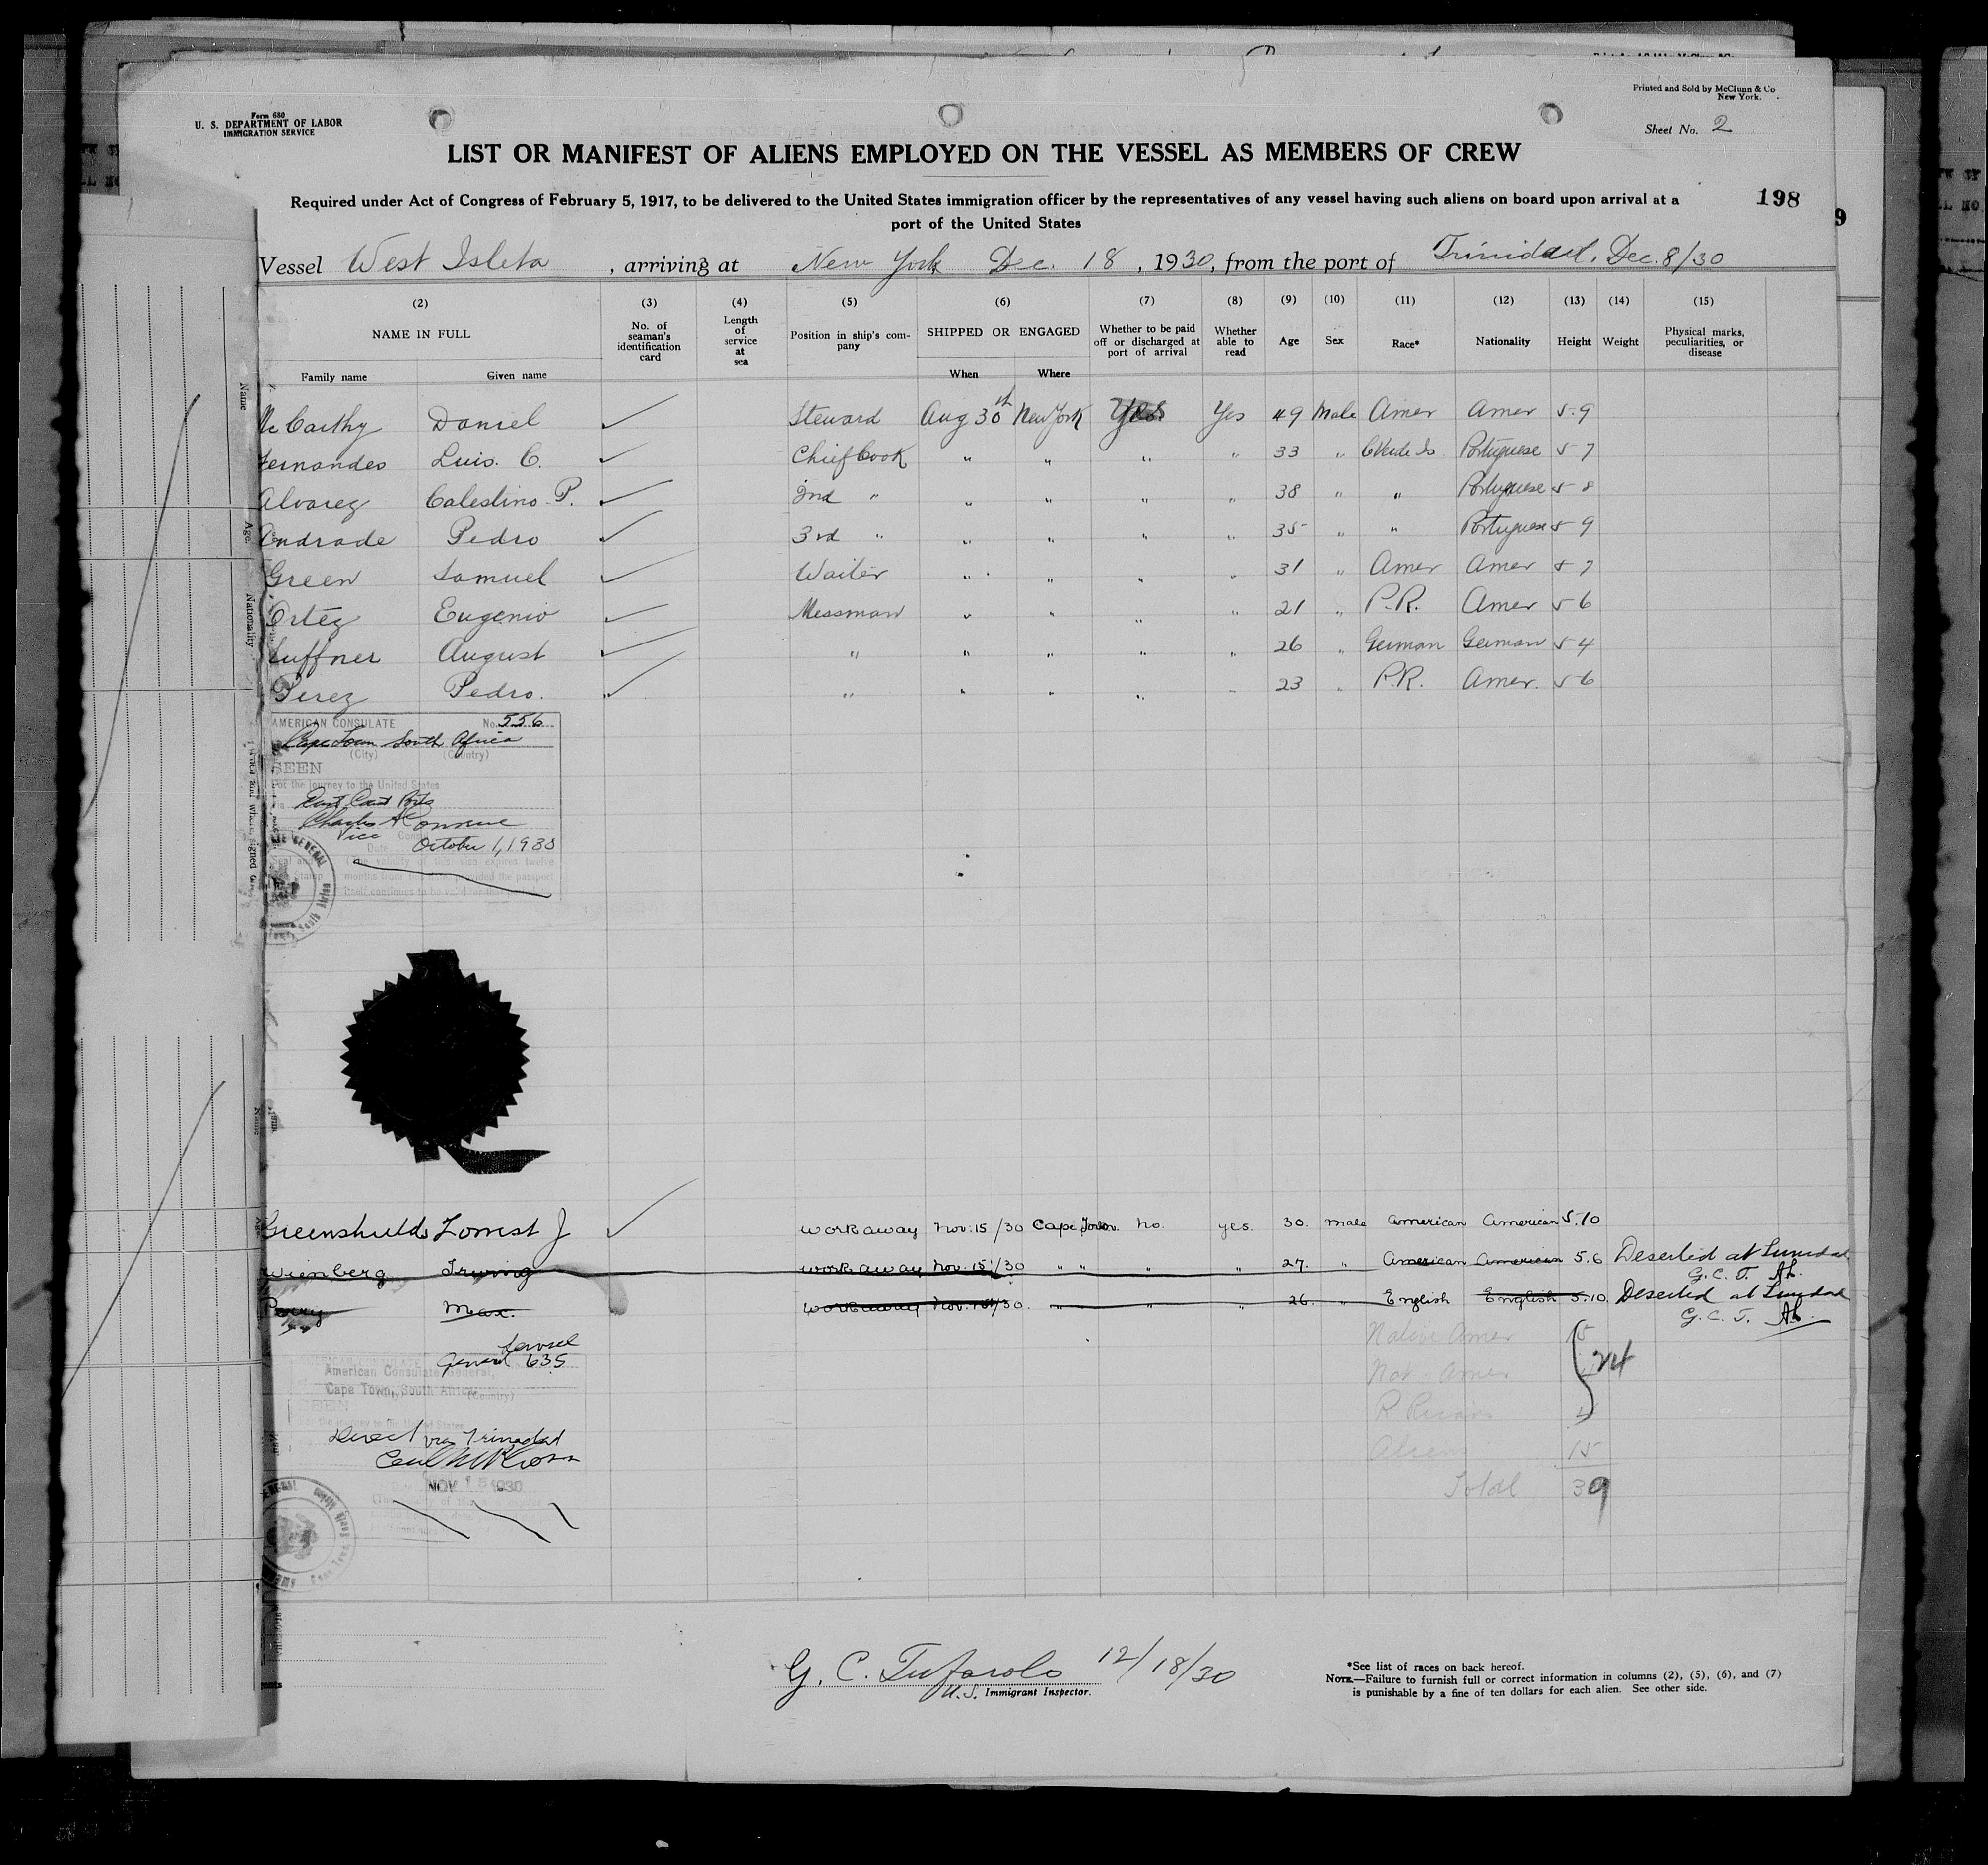 Form 680
U. S. DEPARTMENT OF LABOR
IMMIGRATION SERVICE
Printed and Sold by McClunn & Co
New York.
Sheet No. 2
LIST OR MANIFEST OF ALIENS EMPLOYED ON THE VESSEL AS MEMBERS OF CREW
Required under Act of Congress of February 5, 1917, to be delivered to the United States immigration officer by the representatives of any vessel having such aliens on board upon arrival at a
port of the United States
198
Vessel West Isleta , arriving at New York Dec. 18 , 1930, from the port of Trinidad, Dec. 8/30
(2) (3) (4) (5) (6) (7) (8) (9) (10) (11) (12) (13) (14) (15)
NAME IN FULL No. of seaman's identification card Length of service at sea Position in ship's company SHIPPED OR ENGAGED Whether to be paid off or discharged at port of arrival Whether able to read Age Sex Race* Nationality Height Weight Physical marks, peculiarities, or disease
Family name Given name When Where
McCarthy Daniel Steward Aug 30th New York Yes Yes 49 Male Amer Amer 5-9
Fernandes Luis. C. Chief Cook " " " " 33 " C Verde Is Portuguese 5 7
Alvarez Calestino P. 2nd " " " " " 38 " " Portuguese 5 8
Andrade Pedro 3rd " " " " " 35 " " Portuguese 5 9
Green Samuel Waiter " " " " 31 " Amer Amer 5 7
Ortez Eugenio Messman " " " " 21 " P.R. Amer 5 6
August " " " " " 26 " German German 5 4
Perez Pedro. " " " " " 23 " P.R. Amer. 5 6
AMERICAN CONSULATE No. 556
Cape Town South Africa
(City) (Country)
SEEN
For the journey to the United States
East Coast Ports
Vice Consul
Date October 1, 1930
Greenshields Forrest J workaway Nov. 15/30 Cape Town. No. yes. 30. Male American American 5.10
Wienberg Irving workaway Nov. 15/30 " " " " 27. " American American 5.6 Deserted at Trinidad
G. C. T.
Perry Max. workaway Nov. 15/30. " " " 26. " English English 5.10 Deserted at Trinidad
G. C. T.
Native Amer 5
Nat. Amer
24
Aliens 15
Total 39
General 635
American Consulate General,
Cape Town, South Africa
(Country)
SEEN
For the journey to the United States
Direct via Trinidad
NOV 15 1930
G. C. Tufarolo 12/18/30
U.S. Immigrant Inspector.
*See list of races on back hereof.
NOTE.—Failure to furnish full or correct information in columns (2), (5), (6), and (7)
is punishable by a fine of ten dollars for each alien. See other side.